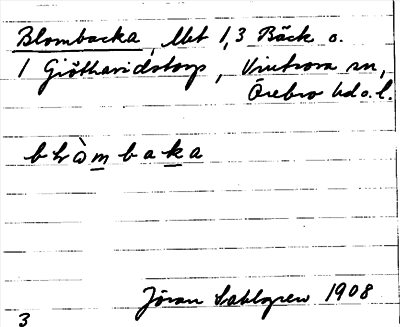 Blombacka, Mbt 1,3 Bäck o.
1 Giötharidstorp, Vintrosa sn,
Örebro hd o. l.
blòmbaka
Jöran Sahlgren 1908
3